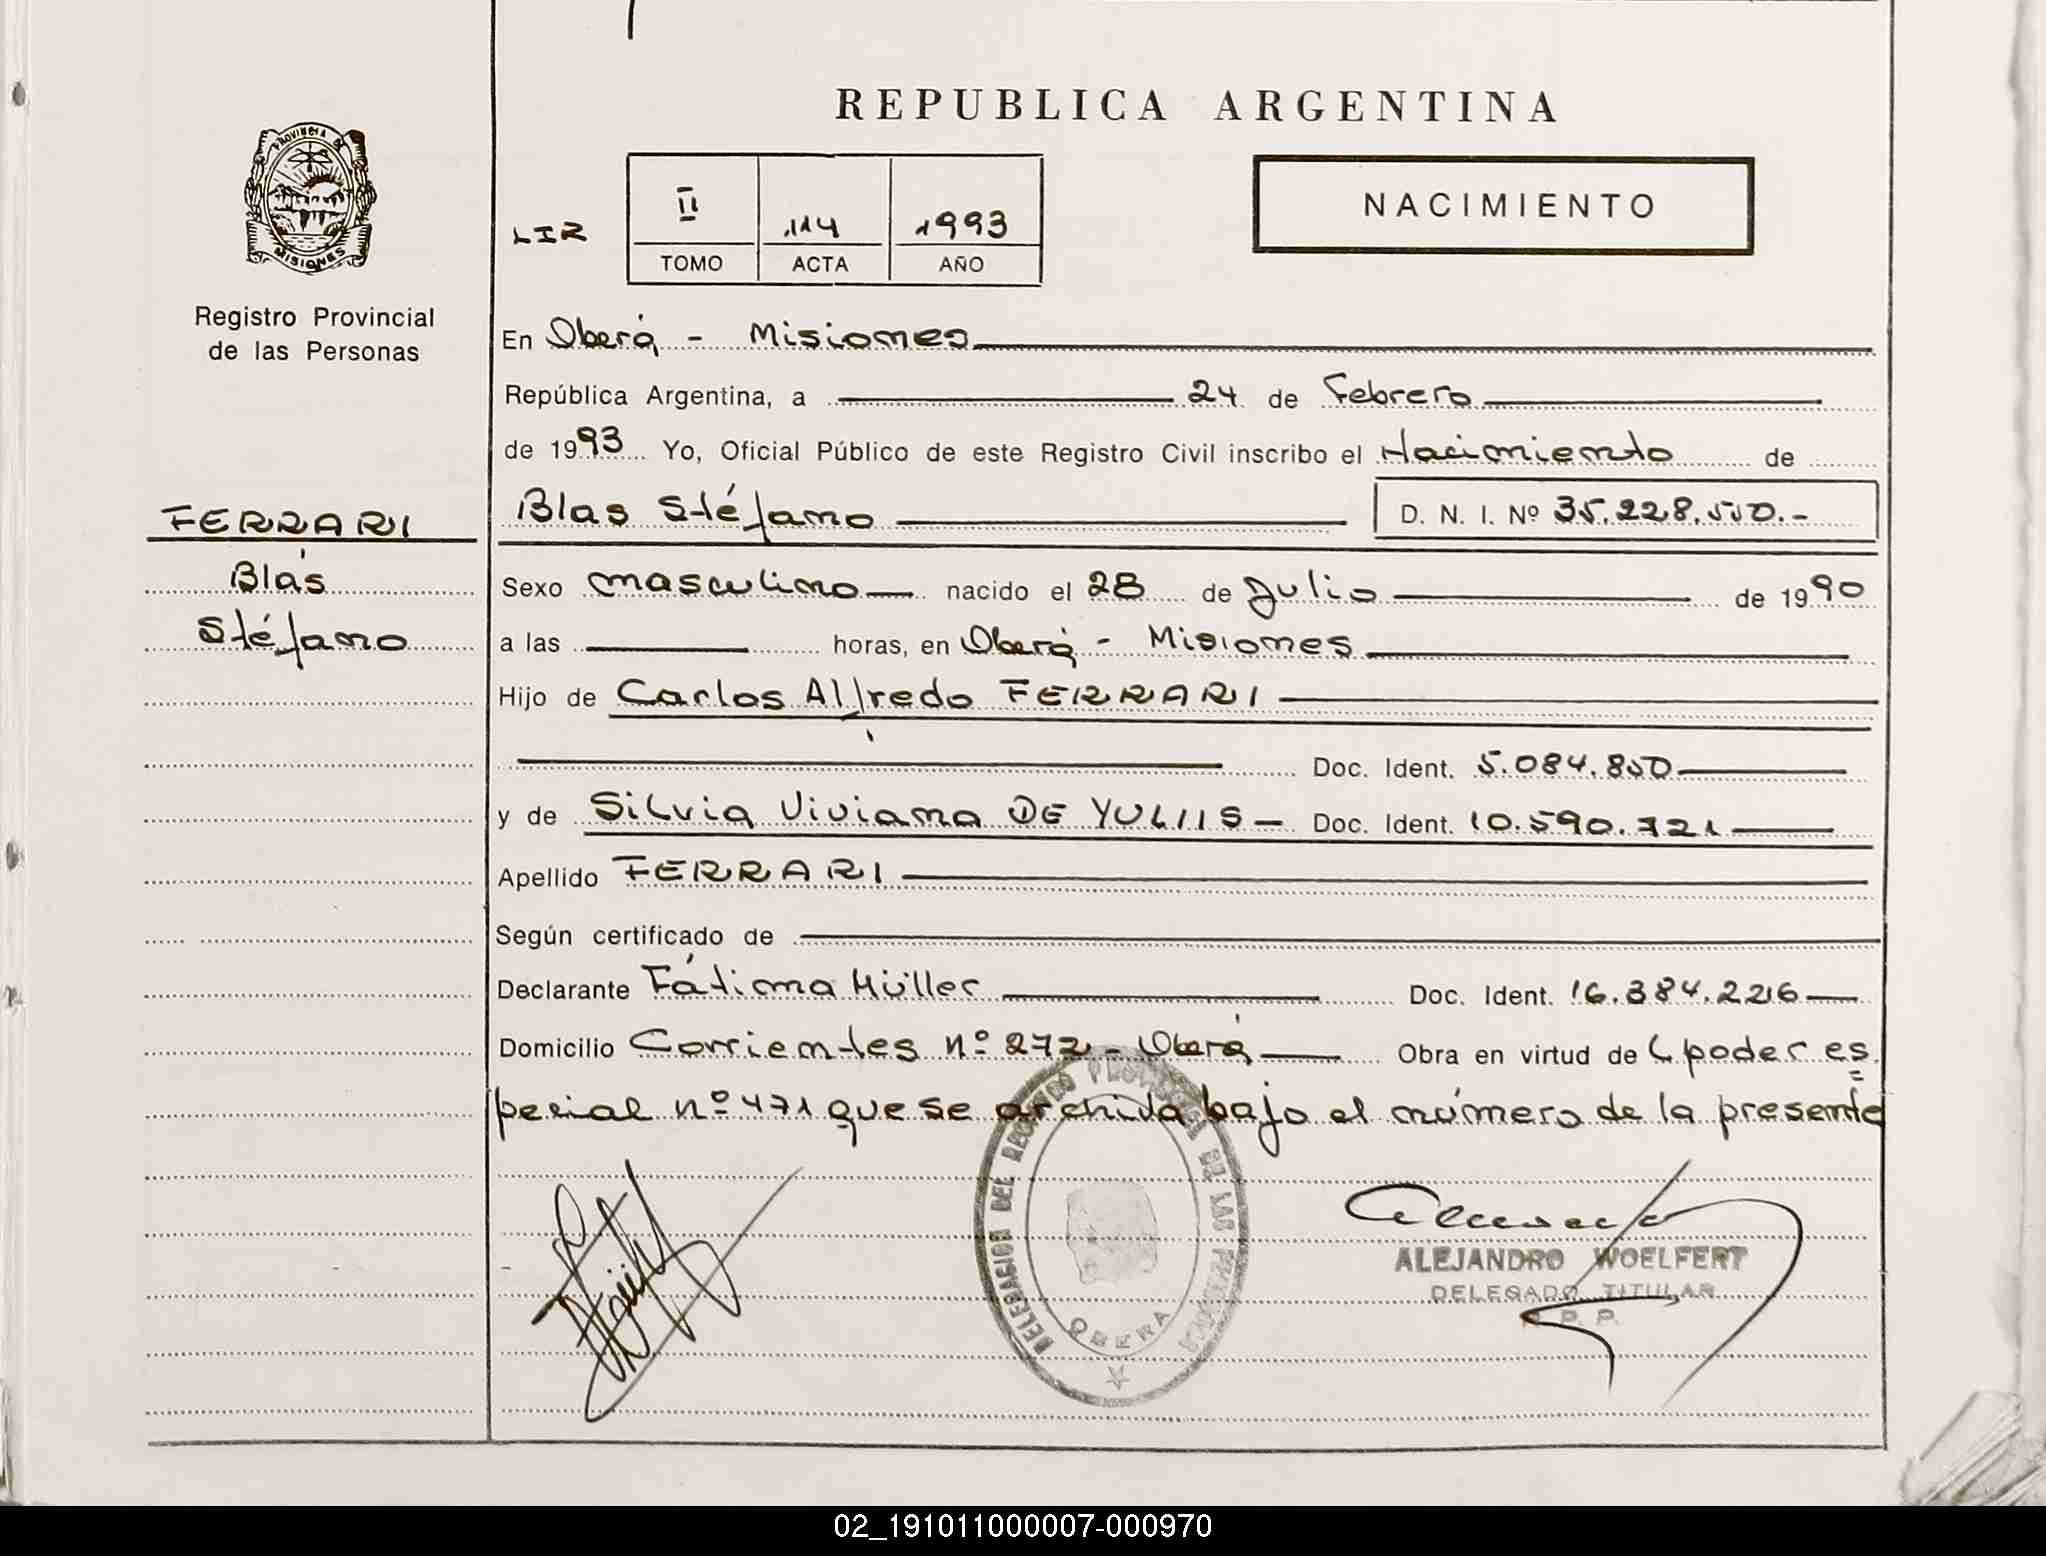 REPUBLICA ARGENTINA
PROVINCIA DE
MISIONES
Registro Provincial
de las Personas
II 114 1993
TOMO ACTA AÑO
NACIMIENTO
En Oberá - Misiones
República Argentina, a 24 de Febrero
de 1993 Yo, Oficial Público de este Registro Civil inscribo el Nacimiento de
FERRARI
Blás
Stéfano
Blas Stéfano D. N. I. Nº 35.228.550.-
Sexo masculino nacido el 28 de Julio de 1990
a las horas, en Oberá - Misiones
Hijo de Carlos Alfredo FERRARI
Doc. Ident. 5.084.850
y de Silvia Viviana DE YULIIS - Doc. Ident. 10.590.721
Apellido FERRARI
Según certificado de
Declarante Fátima Müller Doc. Ident. 16.384.226
Domicilio Corrientes Nº 272 - Oberá Obra en virtud de poder es=
pecial nº 471 que se archiva bajo el número de la presente
DELEGACION DEL REGISTRO PROVINCIAL DE LAS PERSONAS
OBERA
ALEJANDRO WOELFERT
DELEGADO TITULAR
R. P. P.
02_191011000007-000970